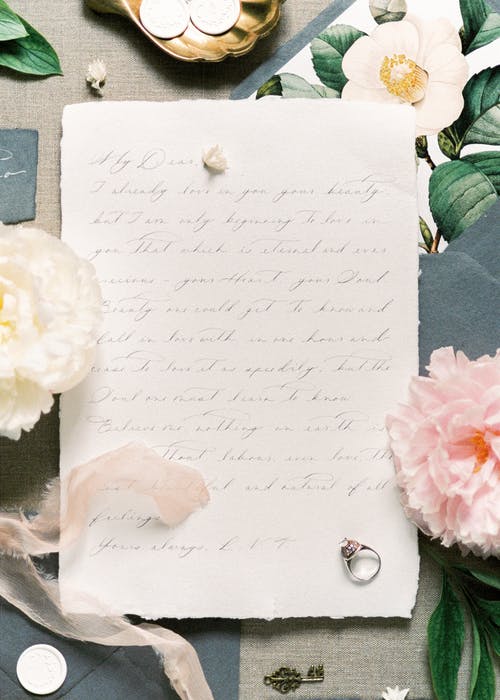 My Dear,
I already love in you your beauty,
but I am only beginning to love in
you that which is eternal and ever
precious – your Heart, your Soul.
Beauty one could get to know and
fall in love with in one hour and
cease to love it as speedily, but the
Soul one must learn to know.
Believe me, nothing on earth is
thout labour, even love, the
most beautiful and natural of all
feelings.
Yours, always. L. N. T.